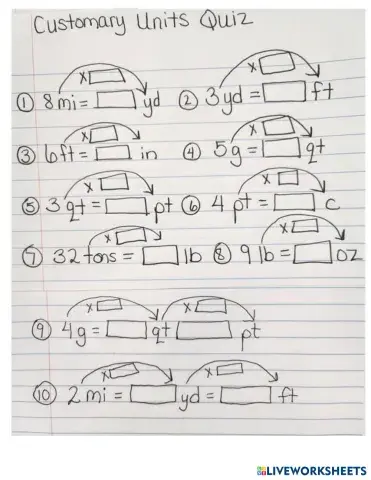 Customary Units Quiz
x
x
① 8 mi = yd ② 3 yd = ft
x
x
③ 6ft = in ④ 5g = qt
x
x
⑤ 3 qt = pt ⑥ 4 pt = c
x
x
⑦ 32 tons = lb ⑧ 9 lb = oz
x
x
⑨ 4g = qt pt
x
x
⑩ 2 mi = yd = ft
LIVEWORKSHEETS